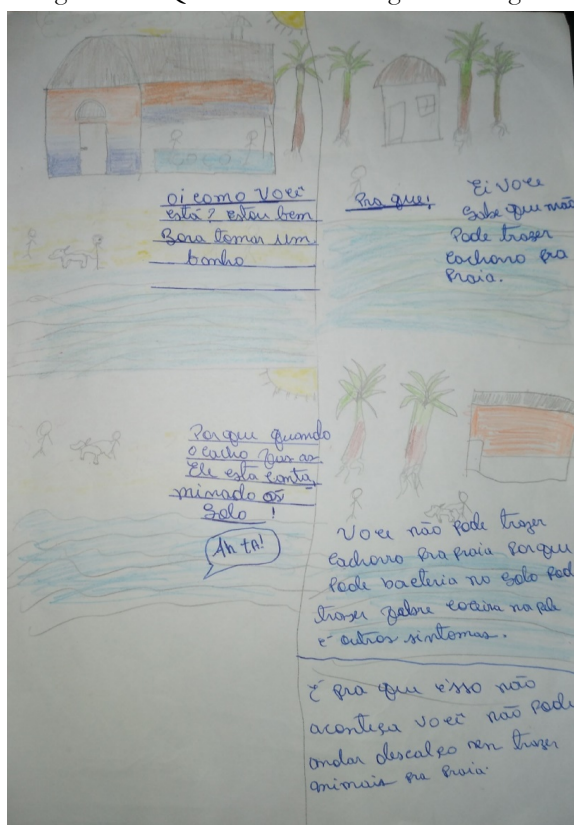 oi como você
está? estou bem
Bora tomar um
banho
Pra que!
Ei você
sabe que não
Pode trazer
cachorro pra
Praia.
Porque quando
o cacho faz as
Ele esta conta
minado os
Solo !
Ah tá!
Você não pode trazer
cachorro pra praia porque
Pode bacteria no solo pod
trazer febre coceira na pele
e outros sintomas.
E pra que isso não
aconteça você não pode
andar descalço nem trazer
animais pra Praia.